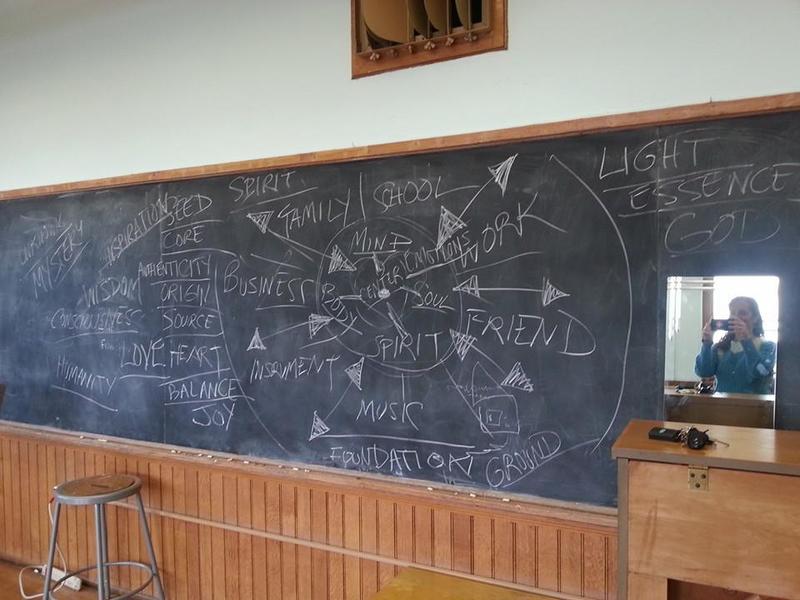 MYSTERY
INSPIRATION
WISDOM
CONSCIOUSNESS
HUMANITY
SEED
CORE
AUTHENTICITY
ORIGIN
SOURCE
LOVE HEART
BALANCE
JOY
SPIRIT
FAMILY
SCHOOL
WORK
BUSINESS
MIND
EMOTIONS
CENTER
BODY
SOUL
SPIRIT
FRIEND
INSRUMENT
MUSIC
FOUNDATION
GROUND
LIGHT
ESSENCE
GOD